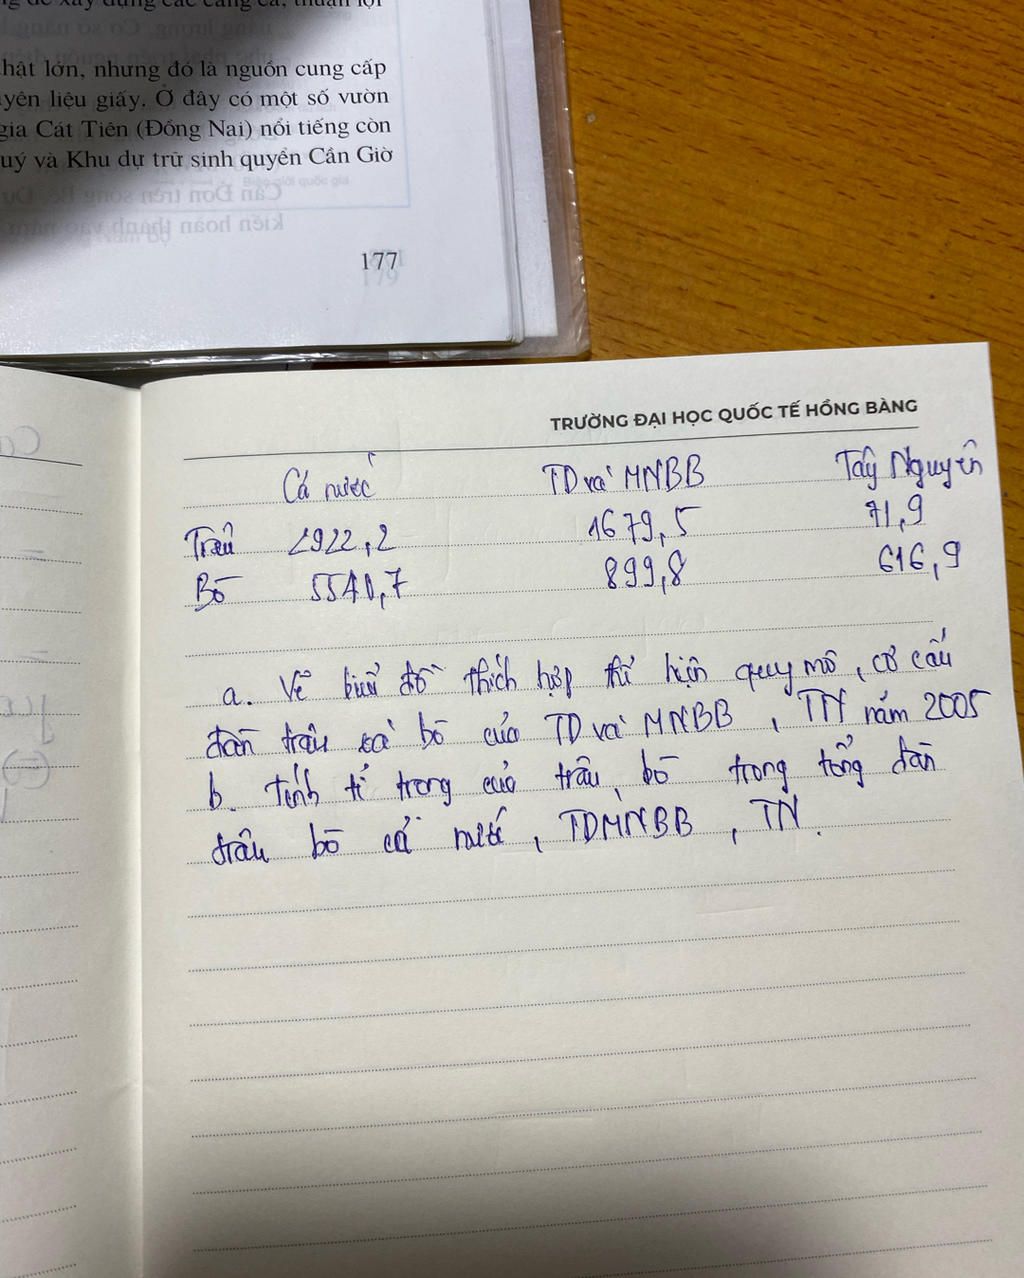 hật lớn, nhưng đó là nguồn cung cấp
yên liệu giấy. Ở đây có một số vườn
gia Cát Tiên (Đồng Nai) nổi tiếng còn
uý và Khu dự trữ sinh quyển Cần Giờ
177
TRƯỜNG ĐẠI HỌC QUỐC TẾ HỒNG BÀNG
Cả nước TD và MNBB Tây Nguyên
Trâu 2922,2 1679,5 71,9
Bò 5540,7 899,8 616,9
a. Vẽ biểu đồ thích hợp thể hiện quy mô, cơ cấu
đàn trâu và bò của TD và MNBB, TN năm 2005
b. Tính tỉ trọng của trâu, bò trong tổng đàn
trâu bò cả nước, TDMNBB, TN.